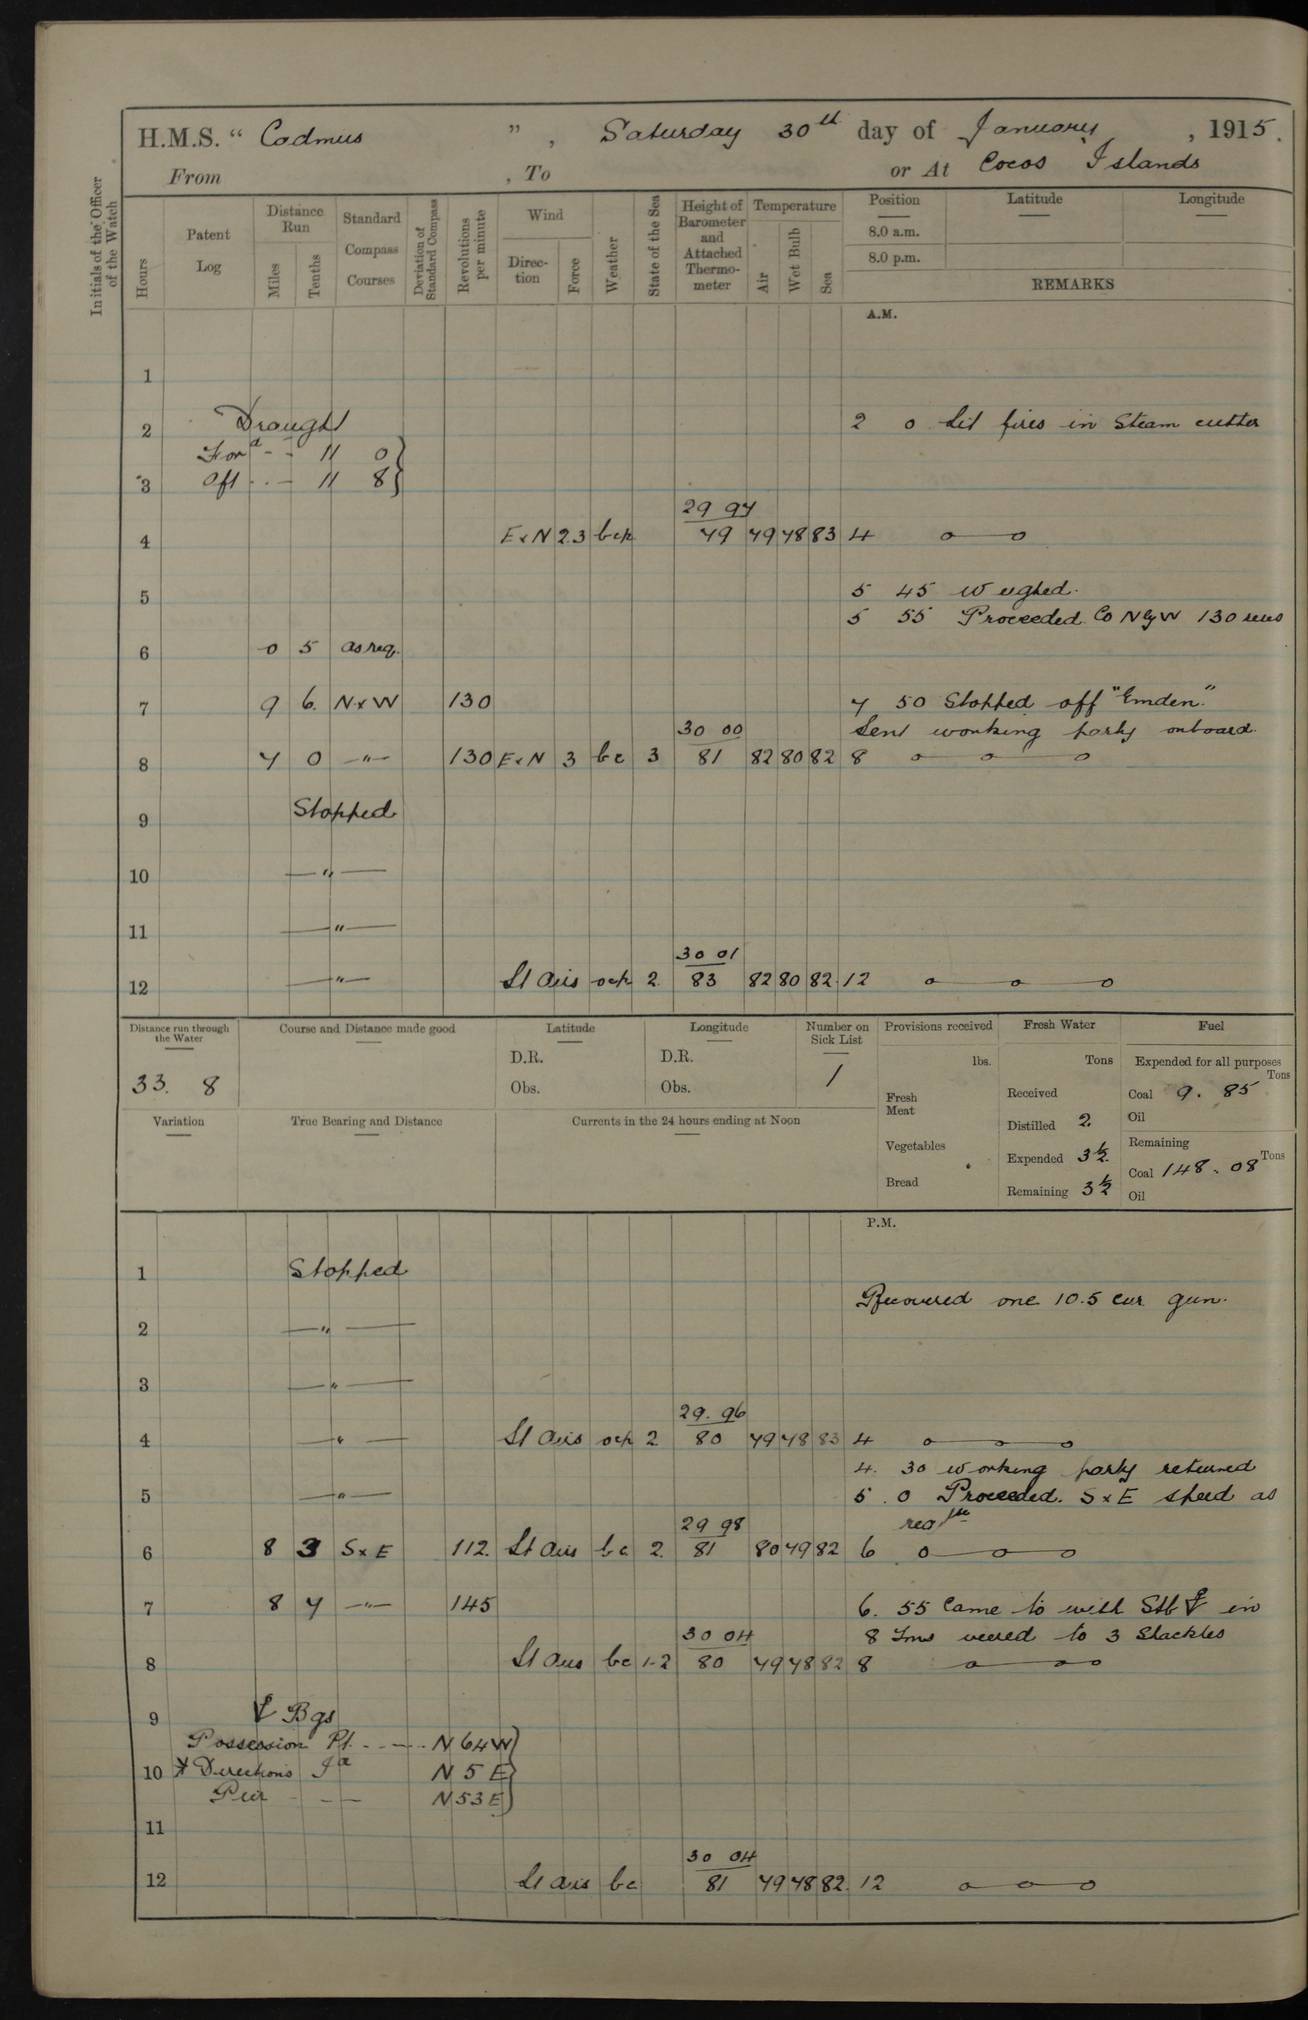 H.M.S. " Cadmus ", Saturday 30th day of January, 1915.
From , To or At Cocos Islands
Initials of the Officer of the Watch
Hours
Patent Log
Distance Run
Miles
Tenths
Standard Compass Courses
Deviation of Standard Compass
Revolutions per minute
Wind
Direction
Force
Weather
State of the Sea
Height of Barometer and Attached Thermometer
Temperature
Air
Wet Bulb
Sea
Position
Latitude
Longitude
8.0 a.m.
8.0 p.m.
REMARKS
A.M.
1
2 Draught 2 0 Lit fires in Steam cutter
Ford - - 11 0
3 Aft - - 11 8
29 97
4 ExN 2.3 bcp 79 79 78 83 4
5 5 45 Weighed.
5 55 Proceeded Co NbyW 130 revs
6 0 5 as req.
7 9 6 NxW 130 7 50 Stopped off "Emden."
30 00 Sent working party onboard.
8 7 0 " 130 ExN 3 bc 3 81 82 80 82 8
9 Stopped
10 "
11 "
30 01
12 " Lt airs ocp 2 83 82 80 82 12
Distance run through the Water
33. 8
Course and Distance made good
Latitude
D.R.
Obs.
Longitude
D.R.
Obs.
Number on Sick List
1
Provisions received
lbs.
Fresh Meat
Vegetables
Bread
Fresh Water
Tons
Received
Distilled 2
Expended 3½
Remaining 3½
Fuel
Expended for all purposes
Tons
Coal 9. 85
Oil
Remaining
Tons
Coal 148. 08
Oil
Variation
True Bearing and Distance
Currents in the 24 hours ending at Noon
P.M.
1 Stopped
Recovered one 10.5 cm gun.
2 "
3 "
29. 96
4 " Lt airs ocp 2 80 79 78 83 4
4. 30 working party returned
5 " 5. 0 Proceeded. SxE speed as
29 98 reqse
6 8 3 SxE 112 Lt airs bc 2 81 80 79 82 6
7 8 7 " 145 6. 55 Came to with Stb in
30 04 8 fms veered to 3 Shackles
8 Lt airs bc 1-2 80 79 78 82 8
9 Bgs
Possession Pt. - - - N 64 W
10 Directions Id N 5 E
Pier - - - N 53 E
11
30 04
12 Lt airs bc 81 79 78 82 12